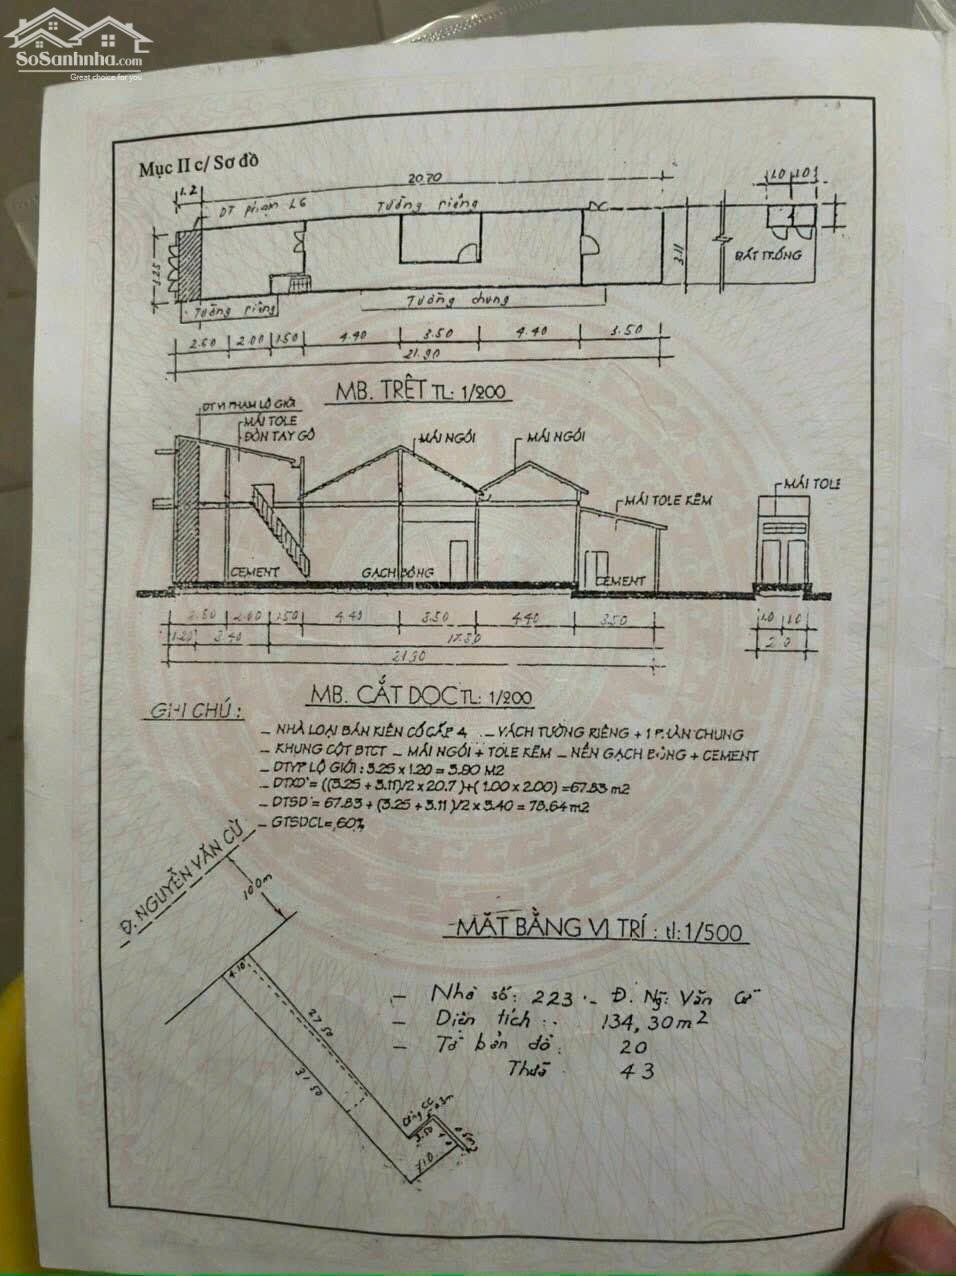 SoSanhnha.com
Great choice for you
Mục II c/ Sơ đồ
1.2
20.70
1.0 1.0
DT phạm LG
Tường riêng
DC
3.25
3.11
ĐẤT TRỐNG
Tường riêng
Tường chung
2.60 2.00 1.50 4.40 3.50 4.40 3.50
21.90
MB. TRỆT TL: 1/200
DT VI PHẠM LỘ GIỚI
MÁI TOLE
ĐÒN TAY GỖ
MÁI NGÓI
MÁI NGÓI
MÁI TOLE KẼM
MÁI TOLE
CEMENT
GẠCH BÔNG
CEMENT
2.60 2.00 1.50 4.40 3.50 4.40 3.50
1.0 1.0
1.20 3.40 17.30
2.0
21.90
MB. CẮT DỌC TL: 1/200
GHI CHÚ :
- NHÀ LOẠI BÁN KIÊN CỐ CẤP 4 - VÁCH TƯỜNG RIÊNG + 1 PHẦN CHUNG
- KHUNG CỘT BTCT - MÁI NGÓI + TOLE KẼM - NỀN GẠCH BÔNG + CEMENT
- DTVP LỘ GIỚI : 3.25 x 1.20 = 3.90 M2
- DTXD = ((3.25 + 3.11)/2 x 20.7 ) + ( 1.00 x 2.00) = 67.83 m2
- DTSD = 67.83 + (3.25 + 3.11 )/2 x 3.40 = 78.64 m2
- GTSDCL = 60%
Đ. NGUYỄN VĂN CỪ
100m
MẶT BẰNG VỊ TRÍ : tl:1/500
4.10
27.50
31.50
- Nhà số: 223 - Đ. Ng. Văn Cừ
- Diện tích : 134,30m2
- Tờ bản đồ : 20
Thửa 43
Cống CC
3.50
7.10